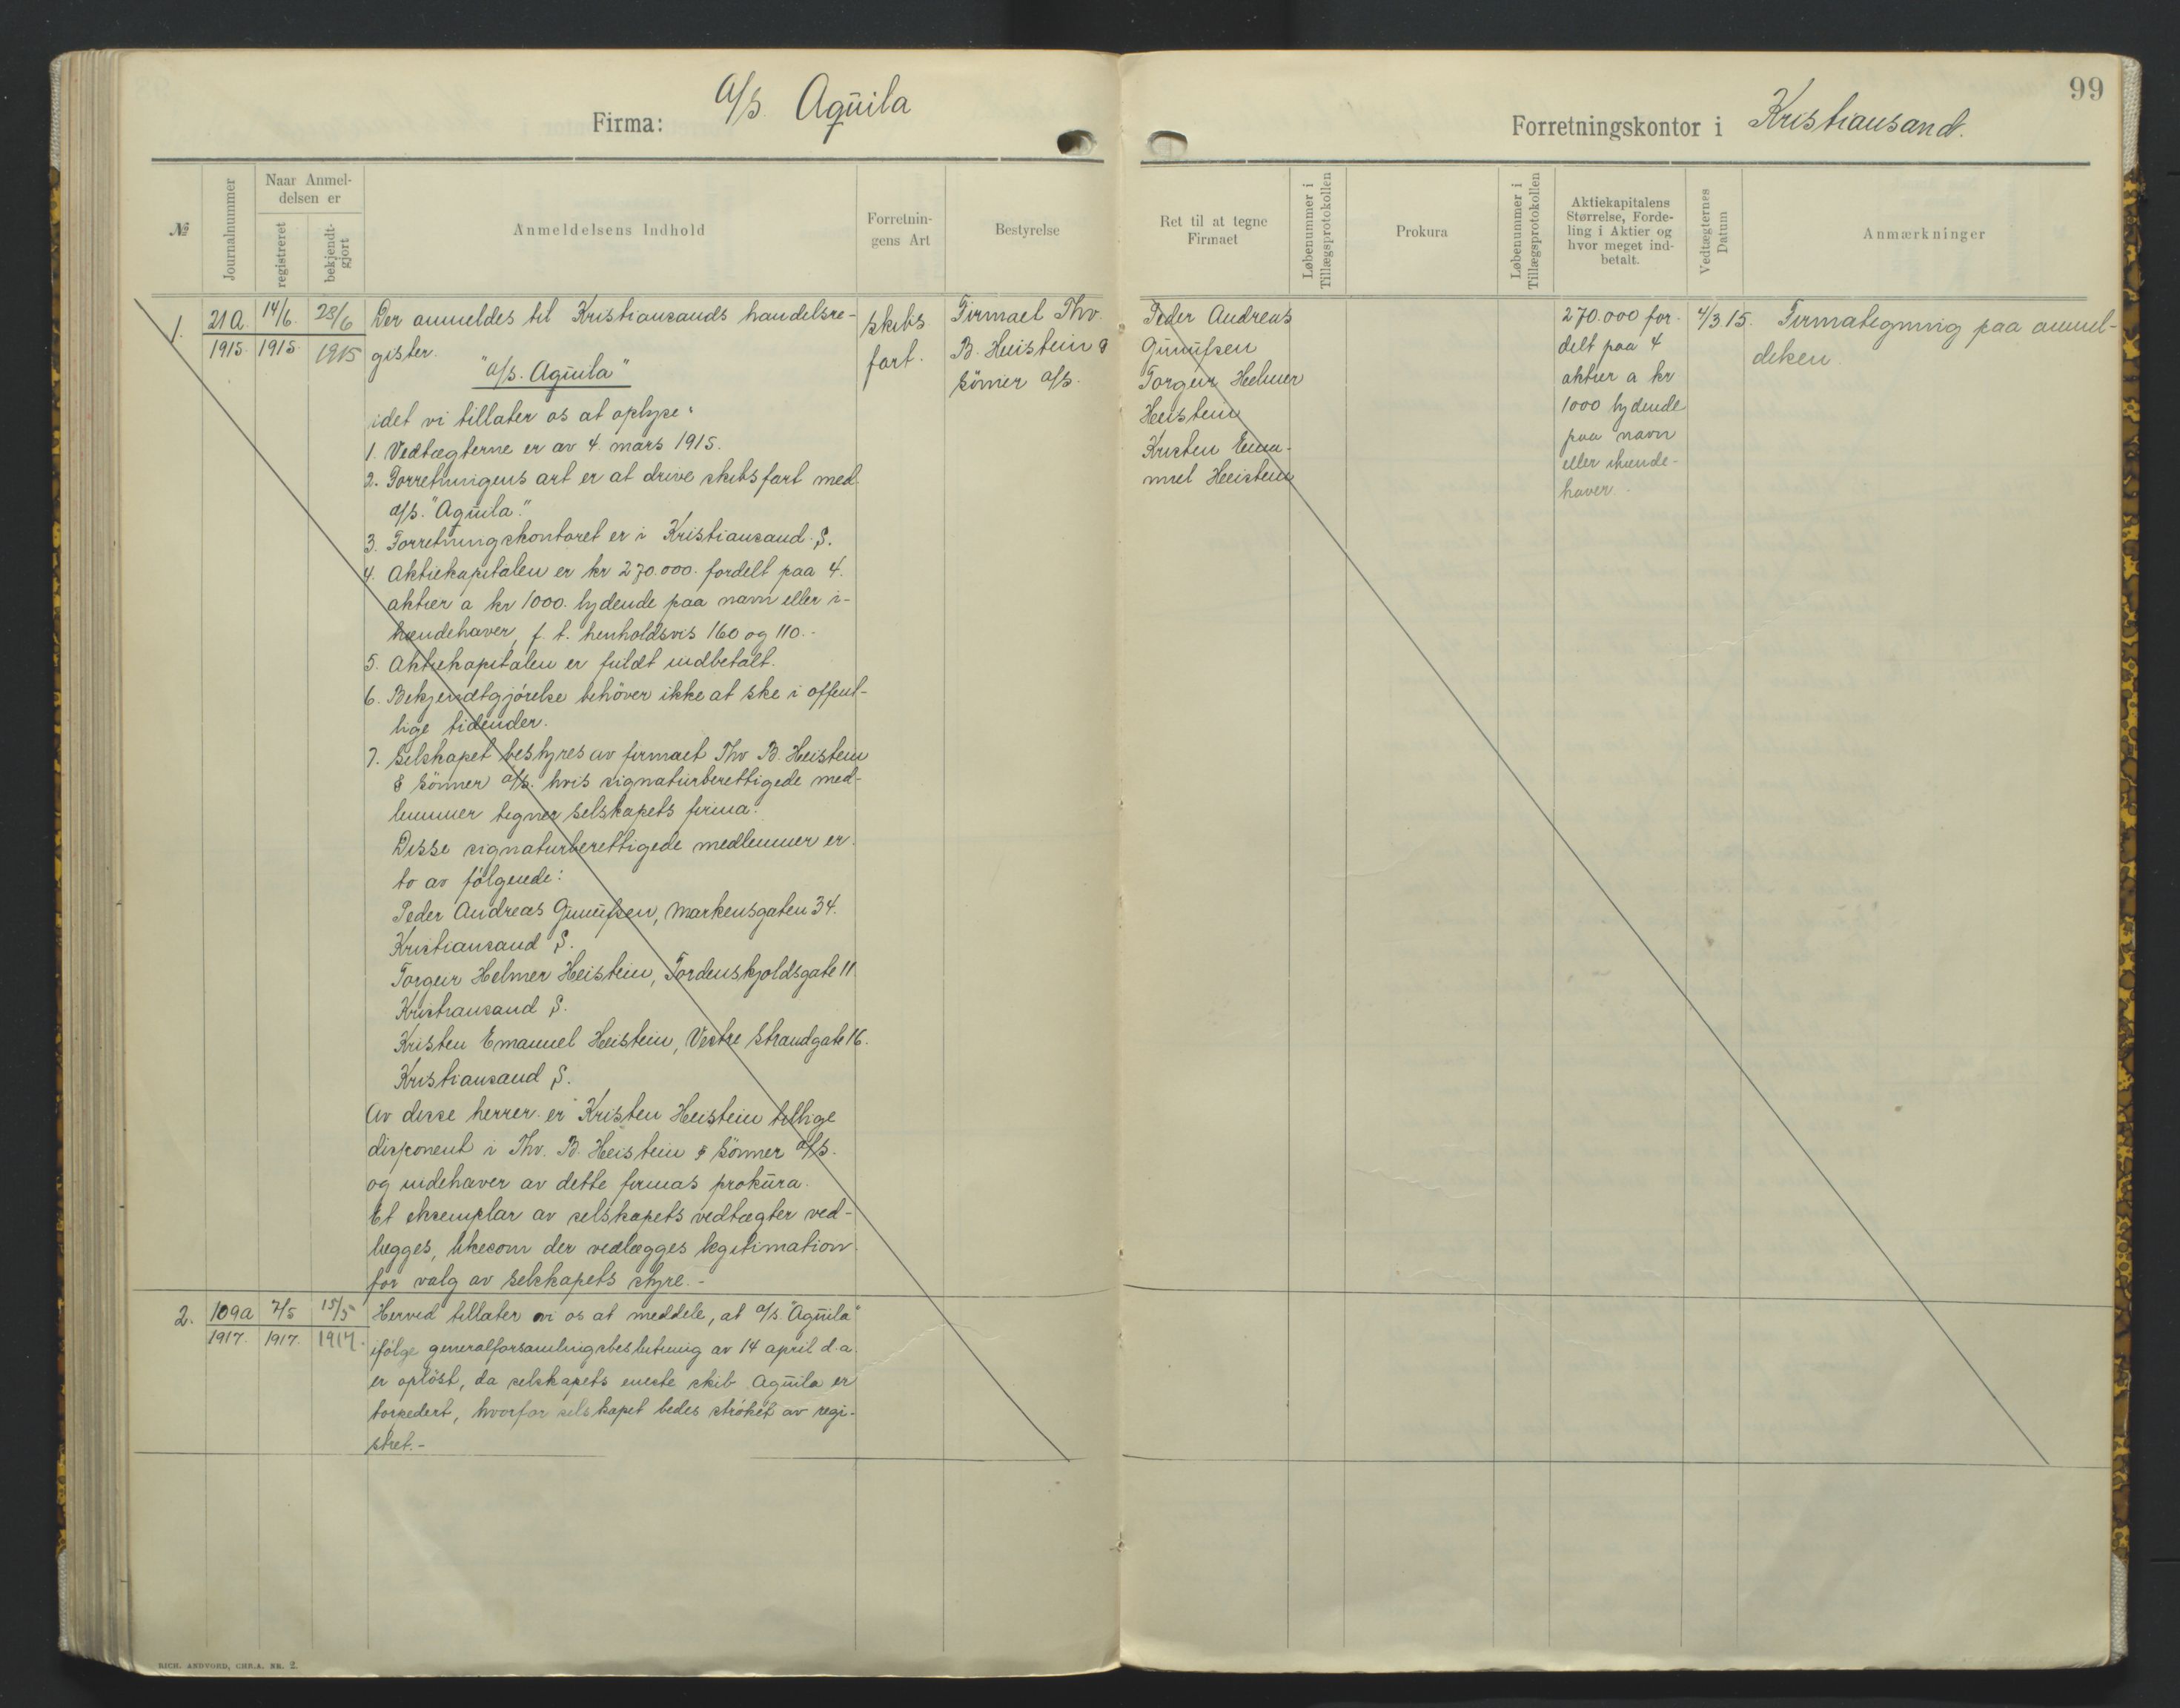 99
Firma: A/S. Aquila
Forretningskontor i Kristiansand.
№
Journalnummer
Naar Anmel-
delsen er
registreret
bekjendt-
gjort
Anmeldelsens Indhold
Forretnin-
gens Art
Bestyrelse
Ret til at tegne
Firmaet
Løbenummer i
Tillægsprotokollen
Prokura
Løbenummer i
Tillægsprotokollen
Aktiekapitalens
Størrelse, Forde-
ling i Aktier og
hvor meget ind-
betalt.
Vedtægternes
Datum
Anmærkninger
1.
21a
1915
14/6
1915
28/6
1915
Der anmeldes til Kristiansands handelsre-
gister.
"a/s. Aquila"
idet vi tillater os at oplyse:
1. Vedtægterne er av 4. mars 1915.
2. Forretningens art er at drive skibsfart med
a/s. "Aquila".
3. Forretningskontoret er i Kristiansand S.
4. Aktiekapitalen er kr 270.000. fordelt paa 4.
aktier a kr 1000. lydende paa navn eller i-
hændehaver, f. t. henholdsvis 160 og 110.-
5. Aktiekapitalen er fuldt indbetalt.
6. Bekjendtgjörelse behöver ikke at ske i offent-
lige tidender.
7. Selskapet bestyres av firmaet Thv B. Heistein
& Sönner a/s. hvis signaturberettigede med-
lemmer tegner selskapets firma.
Disse signaturberettigede medlemmer er
to av fölgende:
Peder Andreas Gunufsen, Markensgaten 34.
Kristiansand S.
Torgeir Helmer Heistein, Tordenskjoldsgate 11.
Kristiansand S.
Kristen Emanuel Heistein, Vestre Strandgate 16.
Kristiansand S.
Av disse herrer er Kristen Heistein tillige
disponent i Thv. B. Heistein & Sönner a/s.
og indehaver av dette firmas prokura.
Et eksemplar av selskapets vedtægter ved-
lægges, likesom der vedlægges legitimation
for valg av selskapets styre.-
skibs
fart.
Firmaet Thv.
B. Heistein &
Sönner a/s.
Peder Andreas
Gunufsen
Torgeir Helmer
Heistein
Kristen Ema-
nuel Heistein
270.000 for-
delt paa 4
aktier a kr
1000 lydende
paa navn
eller ihænde-
haver.
4/3 15.
Firmategning paa anmel-
delsen.
2.
109a
1917.
7/5
1917.
15/5
1917.
Herved tillater vi os at meddele, at a/s. "Aquila"
ifölge generalforsamlingsbeslutning av 14 april d.a.
er oplöst, da selskapets eneste skib Aquila er
torpedert, hvorfor selskapet bedes ströket av regi-
stret.-
RICH. ANDVORD, CHR.A. NR. 2.